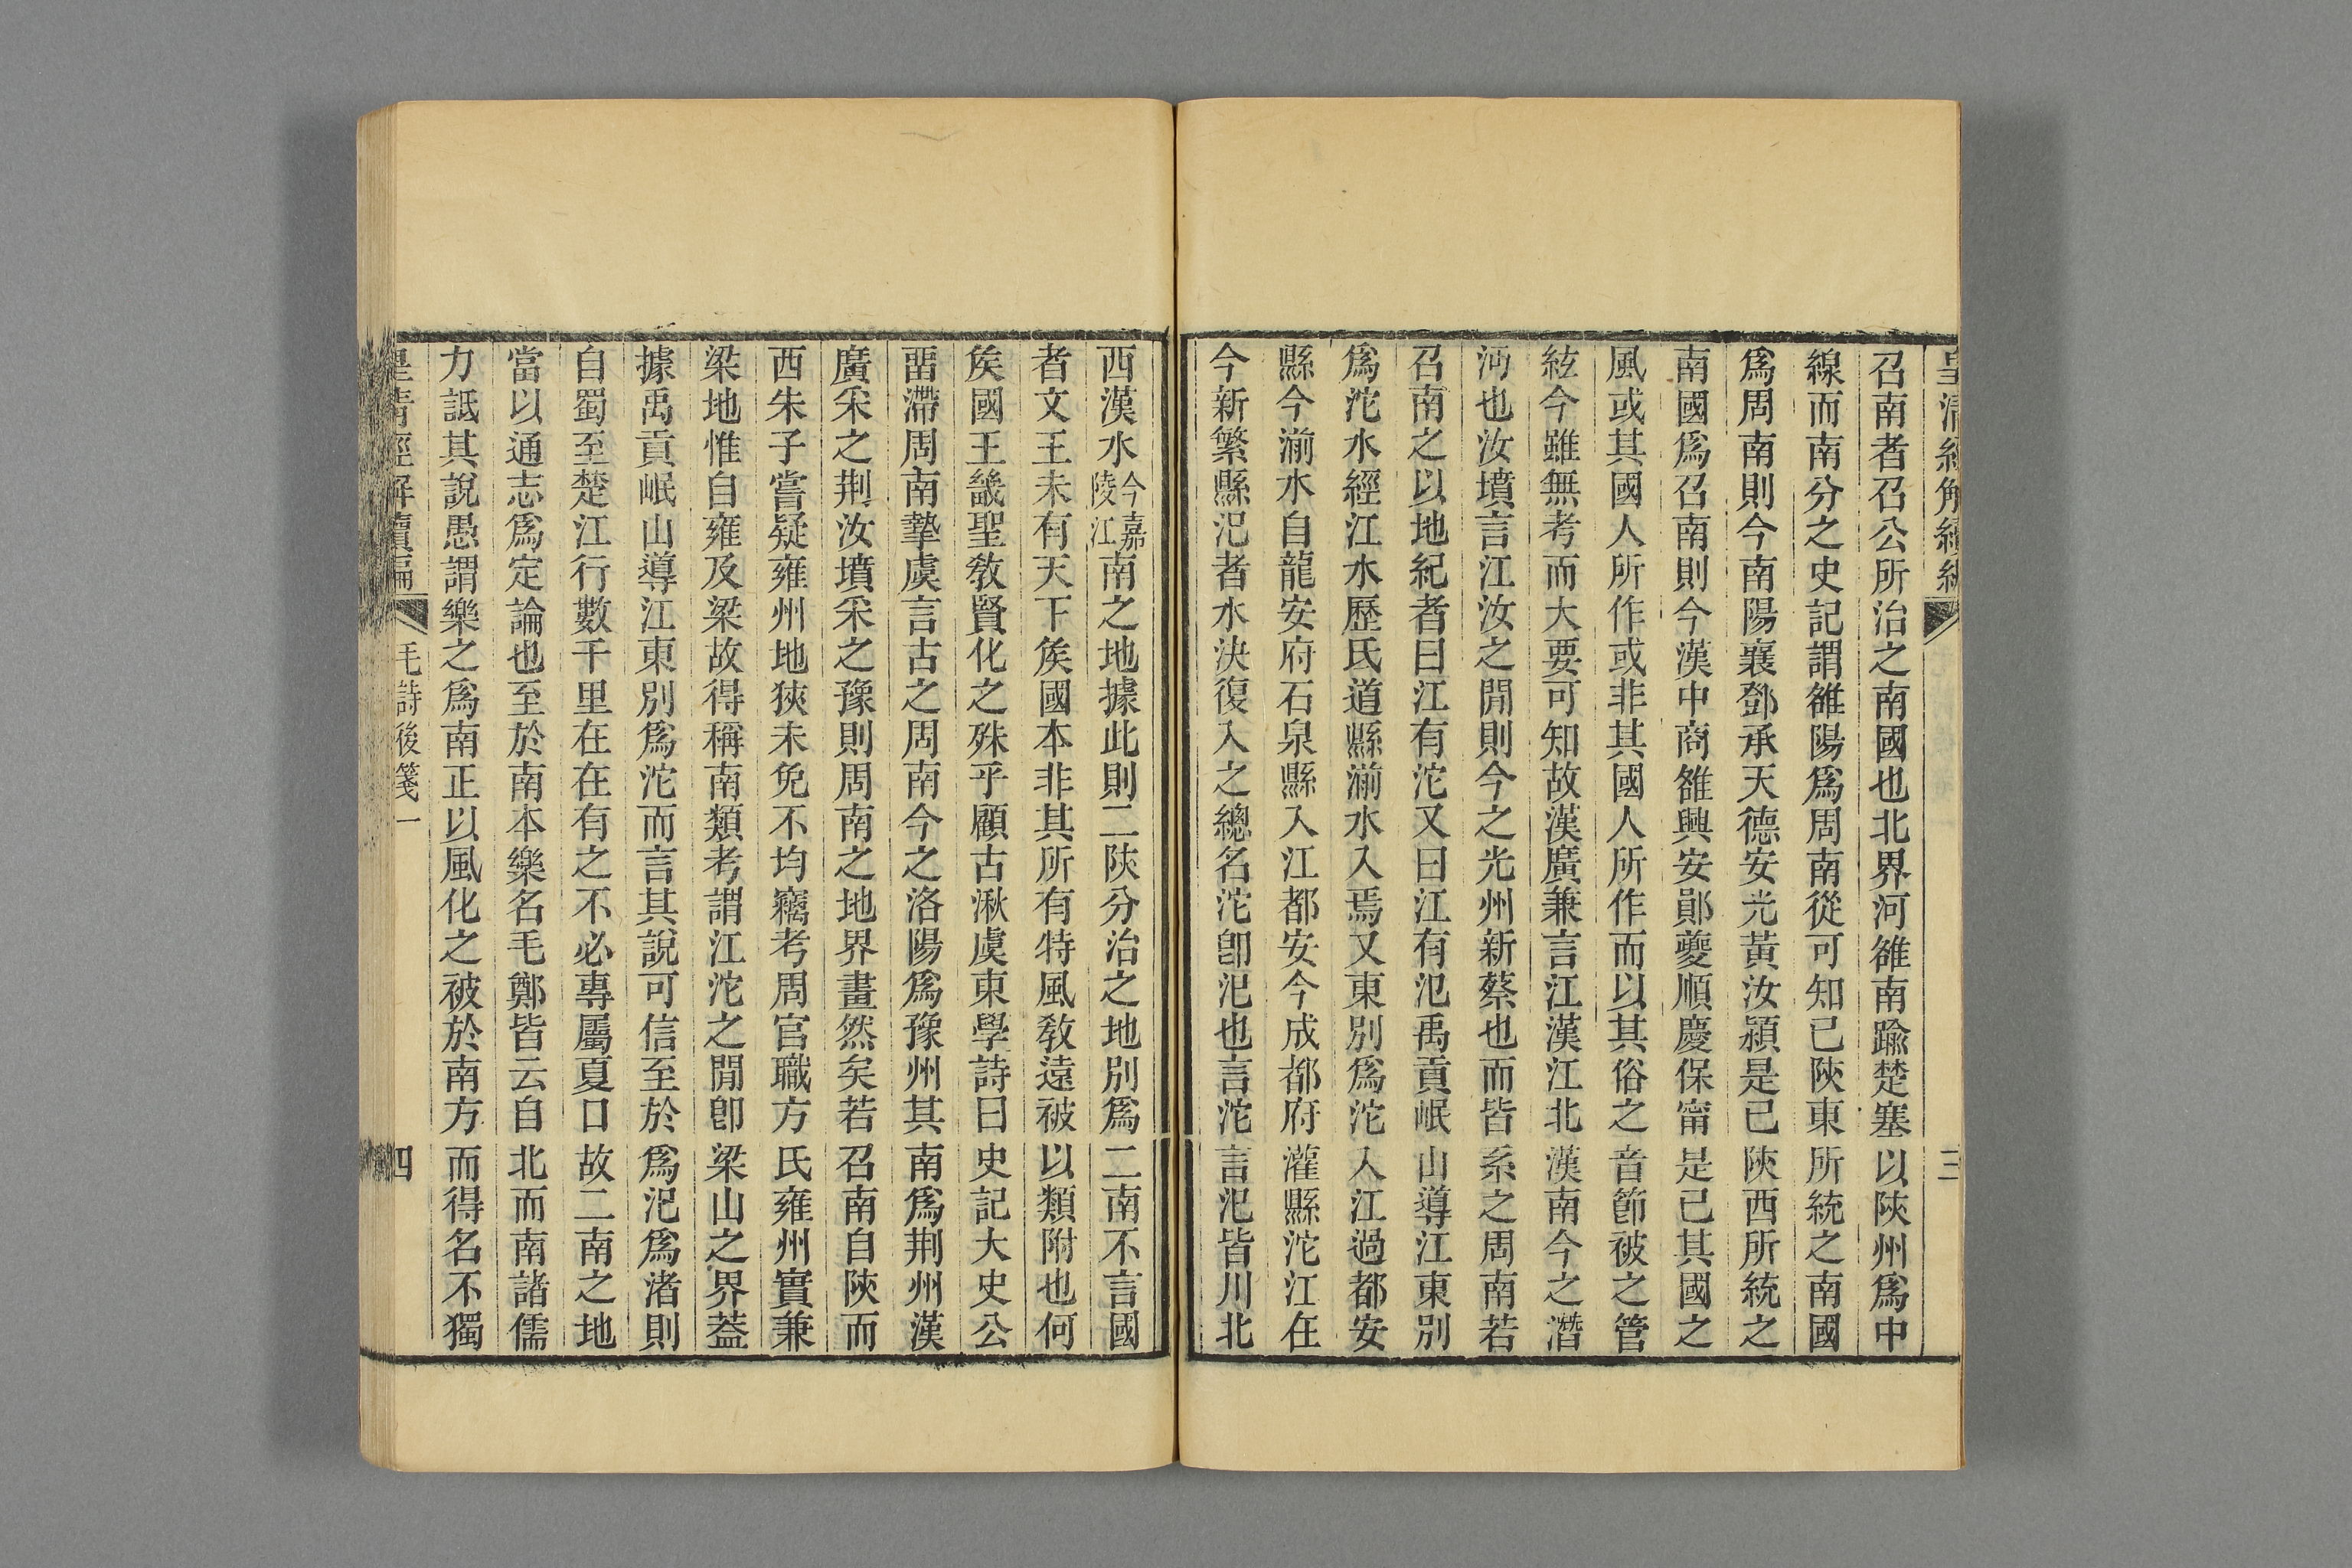 皇清經解續編
三
召南者召公所治之南國也北界河雒南踰楚塞以陝州爲中
線而南分之史記謂雒陽爲周南從可知已陝東所統之南國
爲周南則今南陽襄鄧承天德安光黃汝潁是已陝西所統之
南國爲召南則今漢中商雒興安鄖夔順慶保甯是已其國之
風或其國人所作或非其國人所作而以其俗之音節被之管
絃今雖無考而大要可知故漢廣兼言江漢江北漢南今之潛
沔也汝墳言江汝之閒則今之光州新蔡也而皆系之周南若
召南之以地紀者曰江有沱又曰江有汜禹貢岷山導江東別
爲沱水經江水歷氐道縣湔水入焉又東別爲沱入江過都安
縣今湔水自龍安府石泉縣入江都安今成都府灌縣沱江在
今新繁縣汜者水決復入之總名沱卽汜也言沱言汜皆川北
西漢水今嘉陵江南之地據此則二陝分治之地別爲二南不言國
者文王未有天下矦國本非其所有特風敎遠被以類附也何
矦國王畿聖敎賢化之殊乎顧古湫虞東學詩曰史記大史公
畱滯周南摯虞言古之周南今之洛陽爲豫州其南爲荆州漢
廣采之荆汝墳采之豫則周南之地界畫然矣若召南自陝而
西朱子嘗疑雍州地狹未免不均竊考周官職方氏雍州實兼
梁地惟自雍及梁故得稱南類考謂江沱之閒卽梁山之界葢
據禹貢岷山導江東別爲沱而言其說可信至於爲汜爲渚則
自蜀至楚江行數千里在在有之不必專屬夏口故二南之地
當以通志爲定論也至於南本樂名毛鄭皆云自北而南諸儒
力詆其說愚謂樂之爲南正以風化之被於南方而得名不獨
皇清經解續編
毛詩後箋一
四